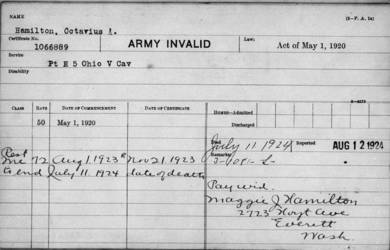 NAME (3-F. A. 1a)
Hamilton, Octavius A.
Certificate No.
1066889 ARMY INVALID Law: Act of May 1, 1920
Service
Pt E 5 Ohio V Cav
Disability
CLASS RATE DATE OF COMMENCEMENT DATE OF CERTIFICATE Home—Admitted
50 May 1, 1920 Discharged
Died July 11 1924 Reported AUG 12 1924
Remarks:
72 Aug 1 1923 Nov 21 1923
to end July 11 1924 date of death
Pay wid.
Maggie J Hamilton
2723 Hoyt Ave
Everett
Wash.